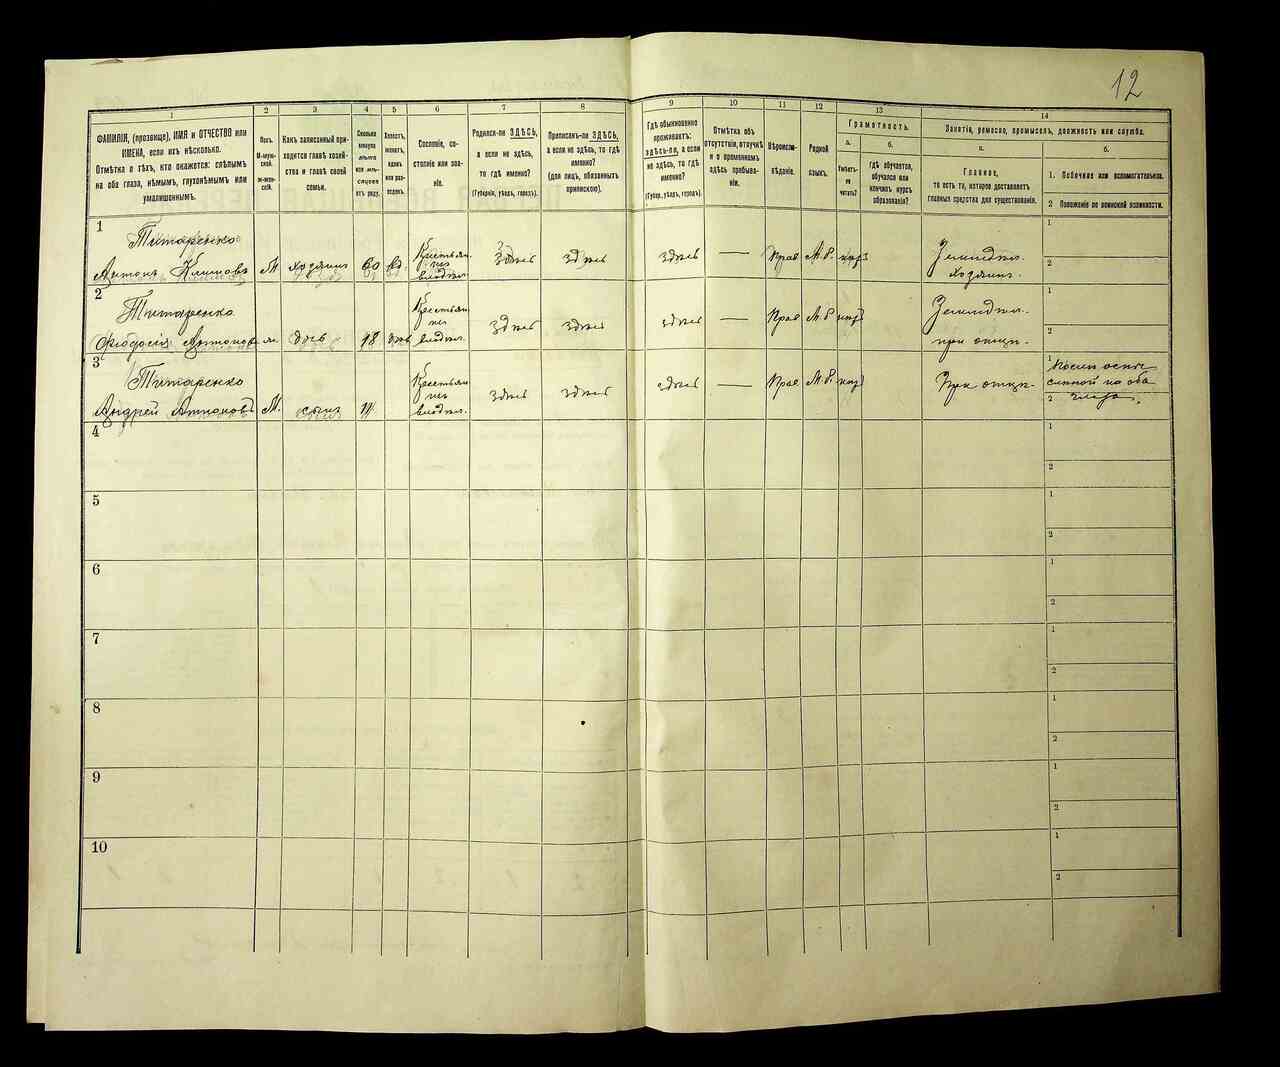 12
1
2
3
4
5
6
7
8
9
10
11
12
13
14
ФАМИЛІЯ, (прозвище), ИМЯ и ОТЧЕСТВО или
ИМЕНА, если ихъ нѣсколько.
Отмѣтка о тѣхъ, кто окажется: слѣпымъ
на оба глаза, нѣмымъ, глухонѣмымъ или
умалишеннымъ.
Полъ.
М-муж-
ской.
ж-жен-
скій.
Какъ записанный при-
ходится главѣ хозяй-
ства и главѣ своей
семьи.
Сколько
минуло
лѣтъ
или мѣ-
сяцевъ
отъ роду.
Холостъ,
женатъ,
вдовъ
или раз-
веденъ.
Сословіе, со-
стояніе или зва-
ніе.
Родился-ли ЗДѢСЬ,
а если не здѣсь,
то гдѣ именно?
(Губернія, уѣздъ, городъ).
Приписанъ-ли ЗДѢСЬ,
а если не здѣсь, то гдѣ
именно?
(для лицъ, обязанныхъ
припискою).
Гдѣ обыкновенно
проживаетъ:
здѣсь-ли, а если
не здѣсь, то гдѣ
именно?
(Губер., уѣздъ, городъ).
Отмѣтка объ
отсутствіи, отлучкѣ
и о временномъ
здѣсь пребыва-
ніи.
Вѣроиспо-
вѣданіе.
Родной
языкъ.
Грамотность.
а.
Умѣетъ-
ли
читать?
б.
Гдѣ обучается,
обучался или
кончилъ курсъ
образованія?
Занятія, ремесло, промыселъ, должность или служба.
а.
Главное,
то есть то, которое доставляетъ
главныя средства для существованія.
б.
1. Побочное или вспомогательное.
2 Положеніе по воинской повинности.
1
Титаренко
Антонъ Климовъ М хозяинъ 60 вд. Крестьян. изъ владѣл. здѣсь здѣсь здѣсь — Прав М.р. Земледѣл. хозяинъ.
1
2
2
Титаренко
Антонов дочь 18 Крестьян изъ владѣл. здѣсь здѣсь здѣсь — Прав М.р Земледѣл. при отцѣ.
1
2
3
Титаренко
Андрей Антоновъ М. сынъ 11 Крестьян изъ владѣл. здѣсь здѣсь здѣсь — Прав М.р. При отцѣ.
1
2
4
1
2
5
1
2
6
1
2
7
1
2
8
1
2
9
1
2
10
1
2